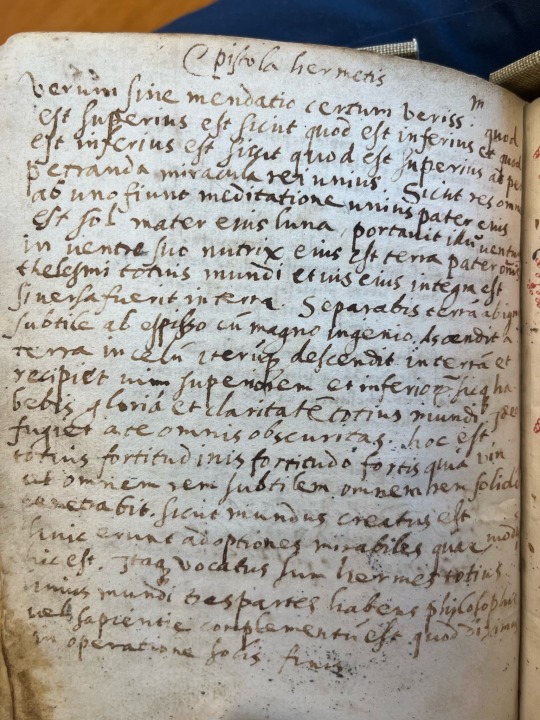 Epistola hermetis
verum sine mendatio certum veriss: quod
est superius est sicut quod est inferius et quod
est inferius est sicut quod est superius ad per
petranda miracula rei unius. Sicut res omn
ab uno fiunt meditatione unius pater eius
est sol mater eius luna, portavit illū ventus
in ventre suo nutrix eius est terra pater omīs
thelesmi totius mundi et vis eius integra est
si versa fuerit in terra. Separabis terrā ab ign
subtile ab espisso cū magno ingenio. Ascendit a
terra in celū iterūq descendit in terrā et
recipiet vim superiorem et inferiorē sicq ha
bebis gloriā et claritatē totius mundi
fugiet a te omnis obscuritas. hoc est
totius fortitudinis fortitudo fortis quia vin
cet omnem rem subtilem omnem rem solidā
penetrabit. sicut mundus creatus est
huic erunt adoptiones mirabiles quae modū
hic est. Itaq vocatus sum hermes totius
unius mundi tres partes habens
vel sapientie complementū est quod diximus
in operatione solis. finis